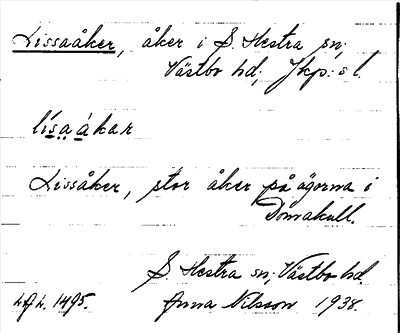 Lissaåker, åker i S. Hestra sn;
Västbo hd; Jkp:s l.
lísa àkar
Lissåker, stor åker på ägorna i
Dömakull.
S. Hestra sn; Västbo hd.
Anna Nilsson 1938.